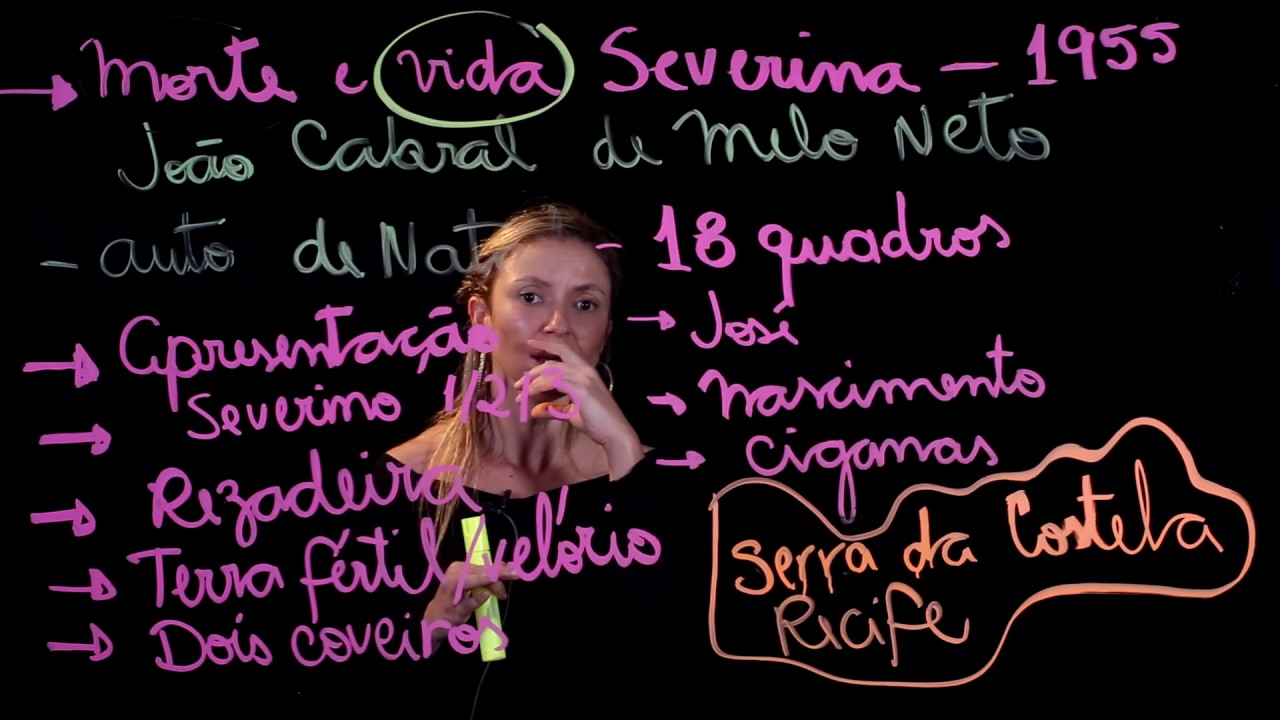 → Morte e vida Severina – 1955
João Cabral de Melo Neto
- auto de Nat
→ Apresentação
→ Severino 1/2/3
→ Rezadeira
→ Terra fértil/velório
→ Dois coveiros
- 18 quadros
→ José
→ nascimento
→ ciganas
Serra da Costela
Recife